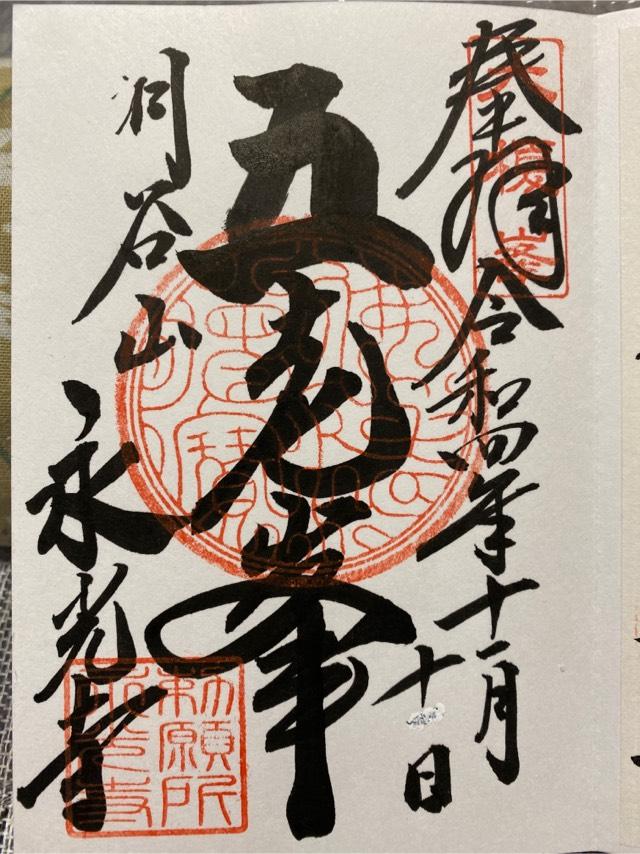 奉拝
令和四年十一月
十日
五老峯
洞谷山
永光寺
勅願所
永光寺